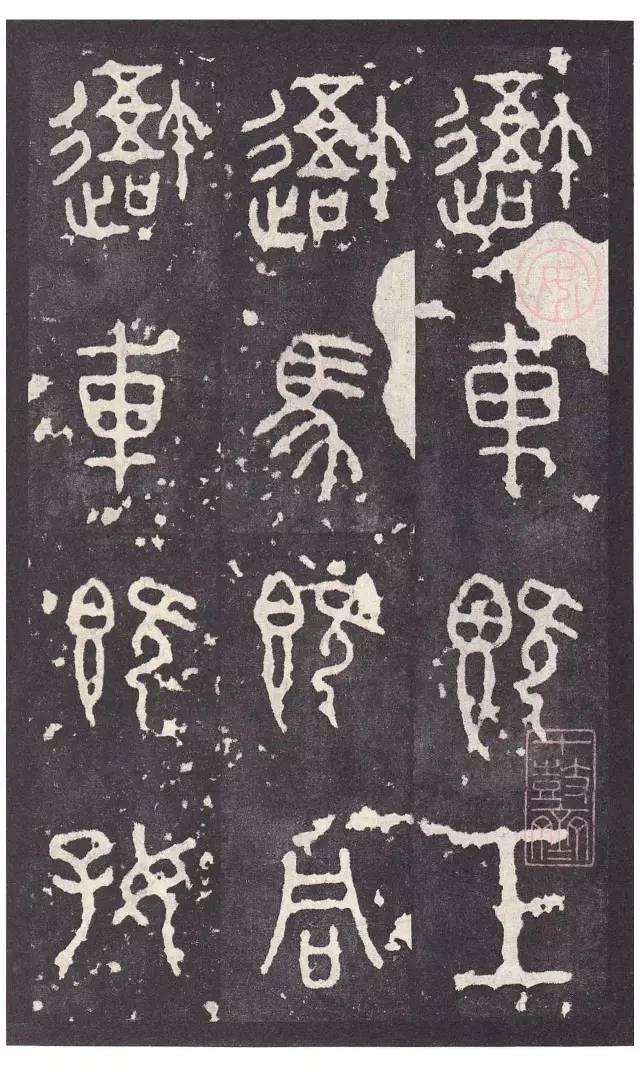 吾車既工
吾馬既同
吾車既好
十鼓齋